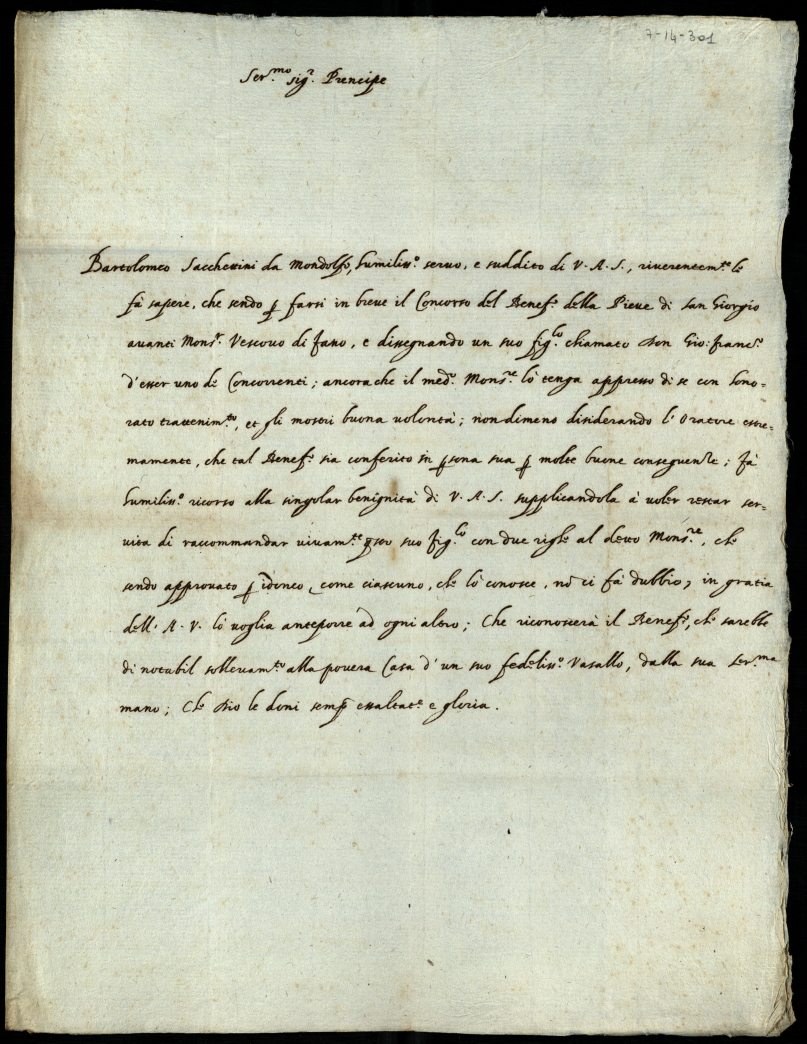 7-14-301
Ser.mo sig.r Prencipe
Bartolomeo Sacchettini da Mondolfo, humiliss.o servo, e suddito di V. A. S., riverentem.te le
fà sapere, che sendo p farsi in breve il Concorso del Benef.o della Pieve di San Giorgio
avanti Mons.r Vescovo di Fano, e dissegnando un suo fig.lo chiamato Don Gio: Franc.o
d'esser uno de Concorrenti; ancora che il med.o Mons.re lò tenga appresso di se con hono-
rato trattenim.to, et gli mostri buona volontà; nondimeno disiderando l'Oratore estre-
mamente, che tal Benef.o sia conferito in psona sua p molte buone conseguenze; fà
humiliss.o ricorso alla singolar benignità di V. A. S. supplicandola à voler restar ser-
vita di raccommandar vivam.te qsto suo fig.lo con due righe al detto Mons.re, che
sendo approvato p idoneo, come ciascuno, che lò conosce, nō ci fà dubbio, in gratia
dell'A. V. lò voglia anteporre ad ogni altro; Che riconoscerà il Benef.o, che sarebbe
di notabil sollevam.to alla povera Casa d'un suo fedeliss.o Vasallo, dalla sua Ser.ma
mano; Che Dio le doni semp essaltat.e e gloria.